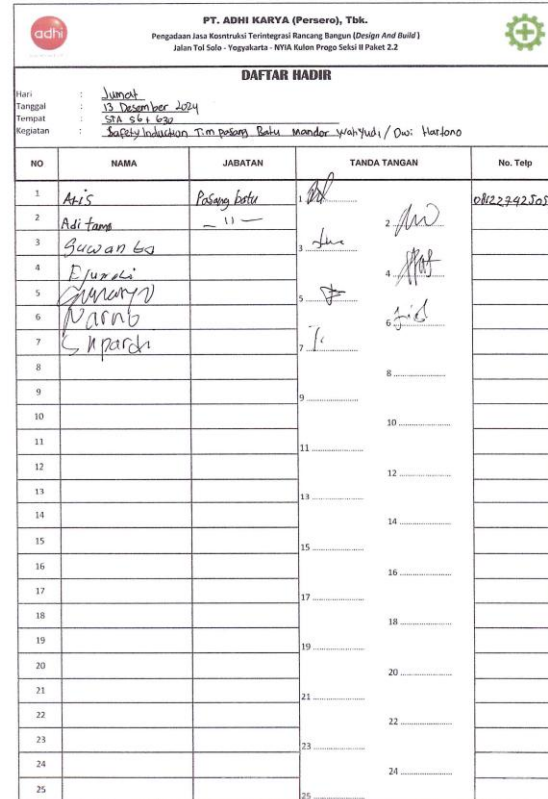 adhi
PT. ADHI KARYA (Persero), Tbk.
Pengadaan Jasa Kosntruksi Terintegrasi Rancang Bangun (Design And Build)
Jalan Tol Solo - Yogyakarta - NYIA Kulon Progo Seksi II Paket 2.2
DAFTAR HADIR
Hari : Jumat
Tanggal : 13 Desember 2024
Tempat : STA 56+630
Kegiatan : Safety Induction Tim pasang Batu mandor Wahyudi / Dwi Hartono
NO NAMA JABATAN TANDA TANGAN No. Telp
1 Aris Pasang batu 1
2 Adi tama — 11 — 2
3 Suwanto 3
4 4
5 5
6 Narno 6
7 Supardi 7
8 8
9 9
10 10
11 11
12 12
13 13
14 14
15 15
16 16
17 17
18 18
19 19
20 20
21 21
22 22
23 23
24 24
25 25